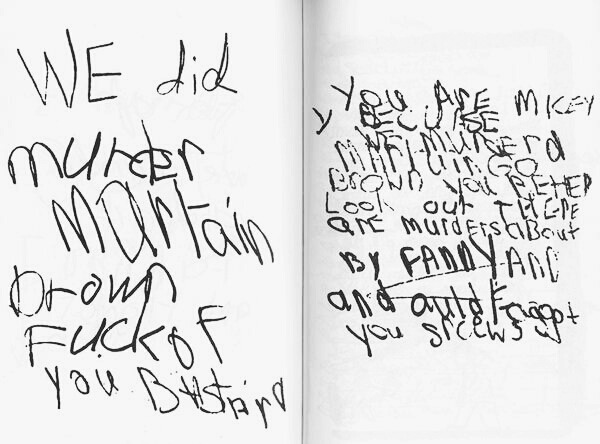 WE did
murder
martain
brown
Fuckof
you BAstard
YOU ArE MICEY
y BECUrSE
WE murderd
MArtain GO
BrOwn you BETEr
Look out THErE
are murders aBout
By FANNY AND
and auld Faggot
you srcews